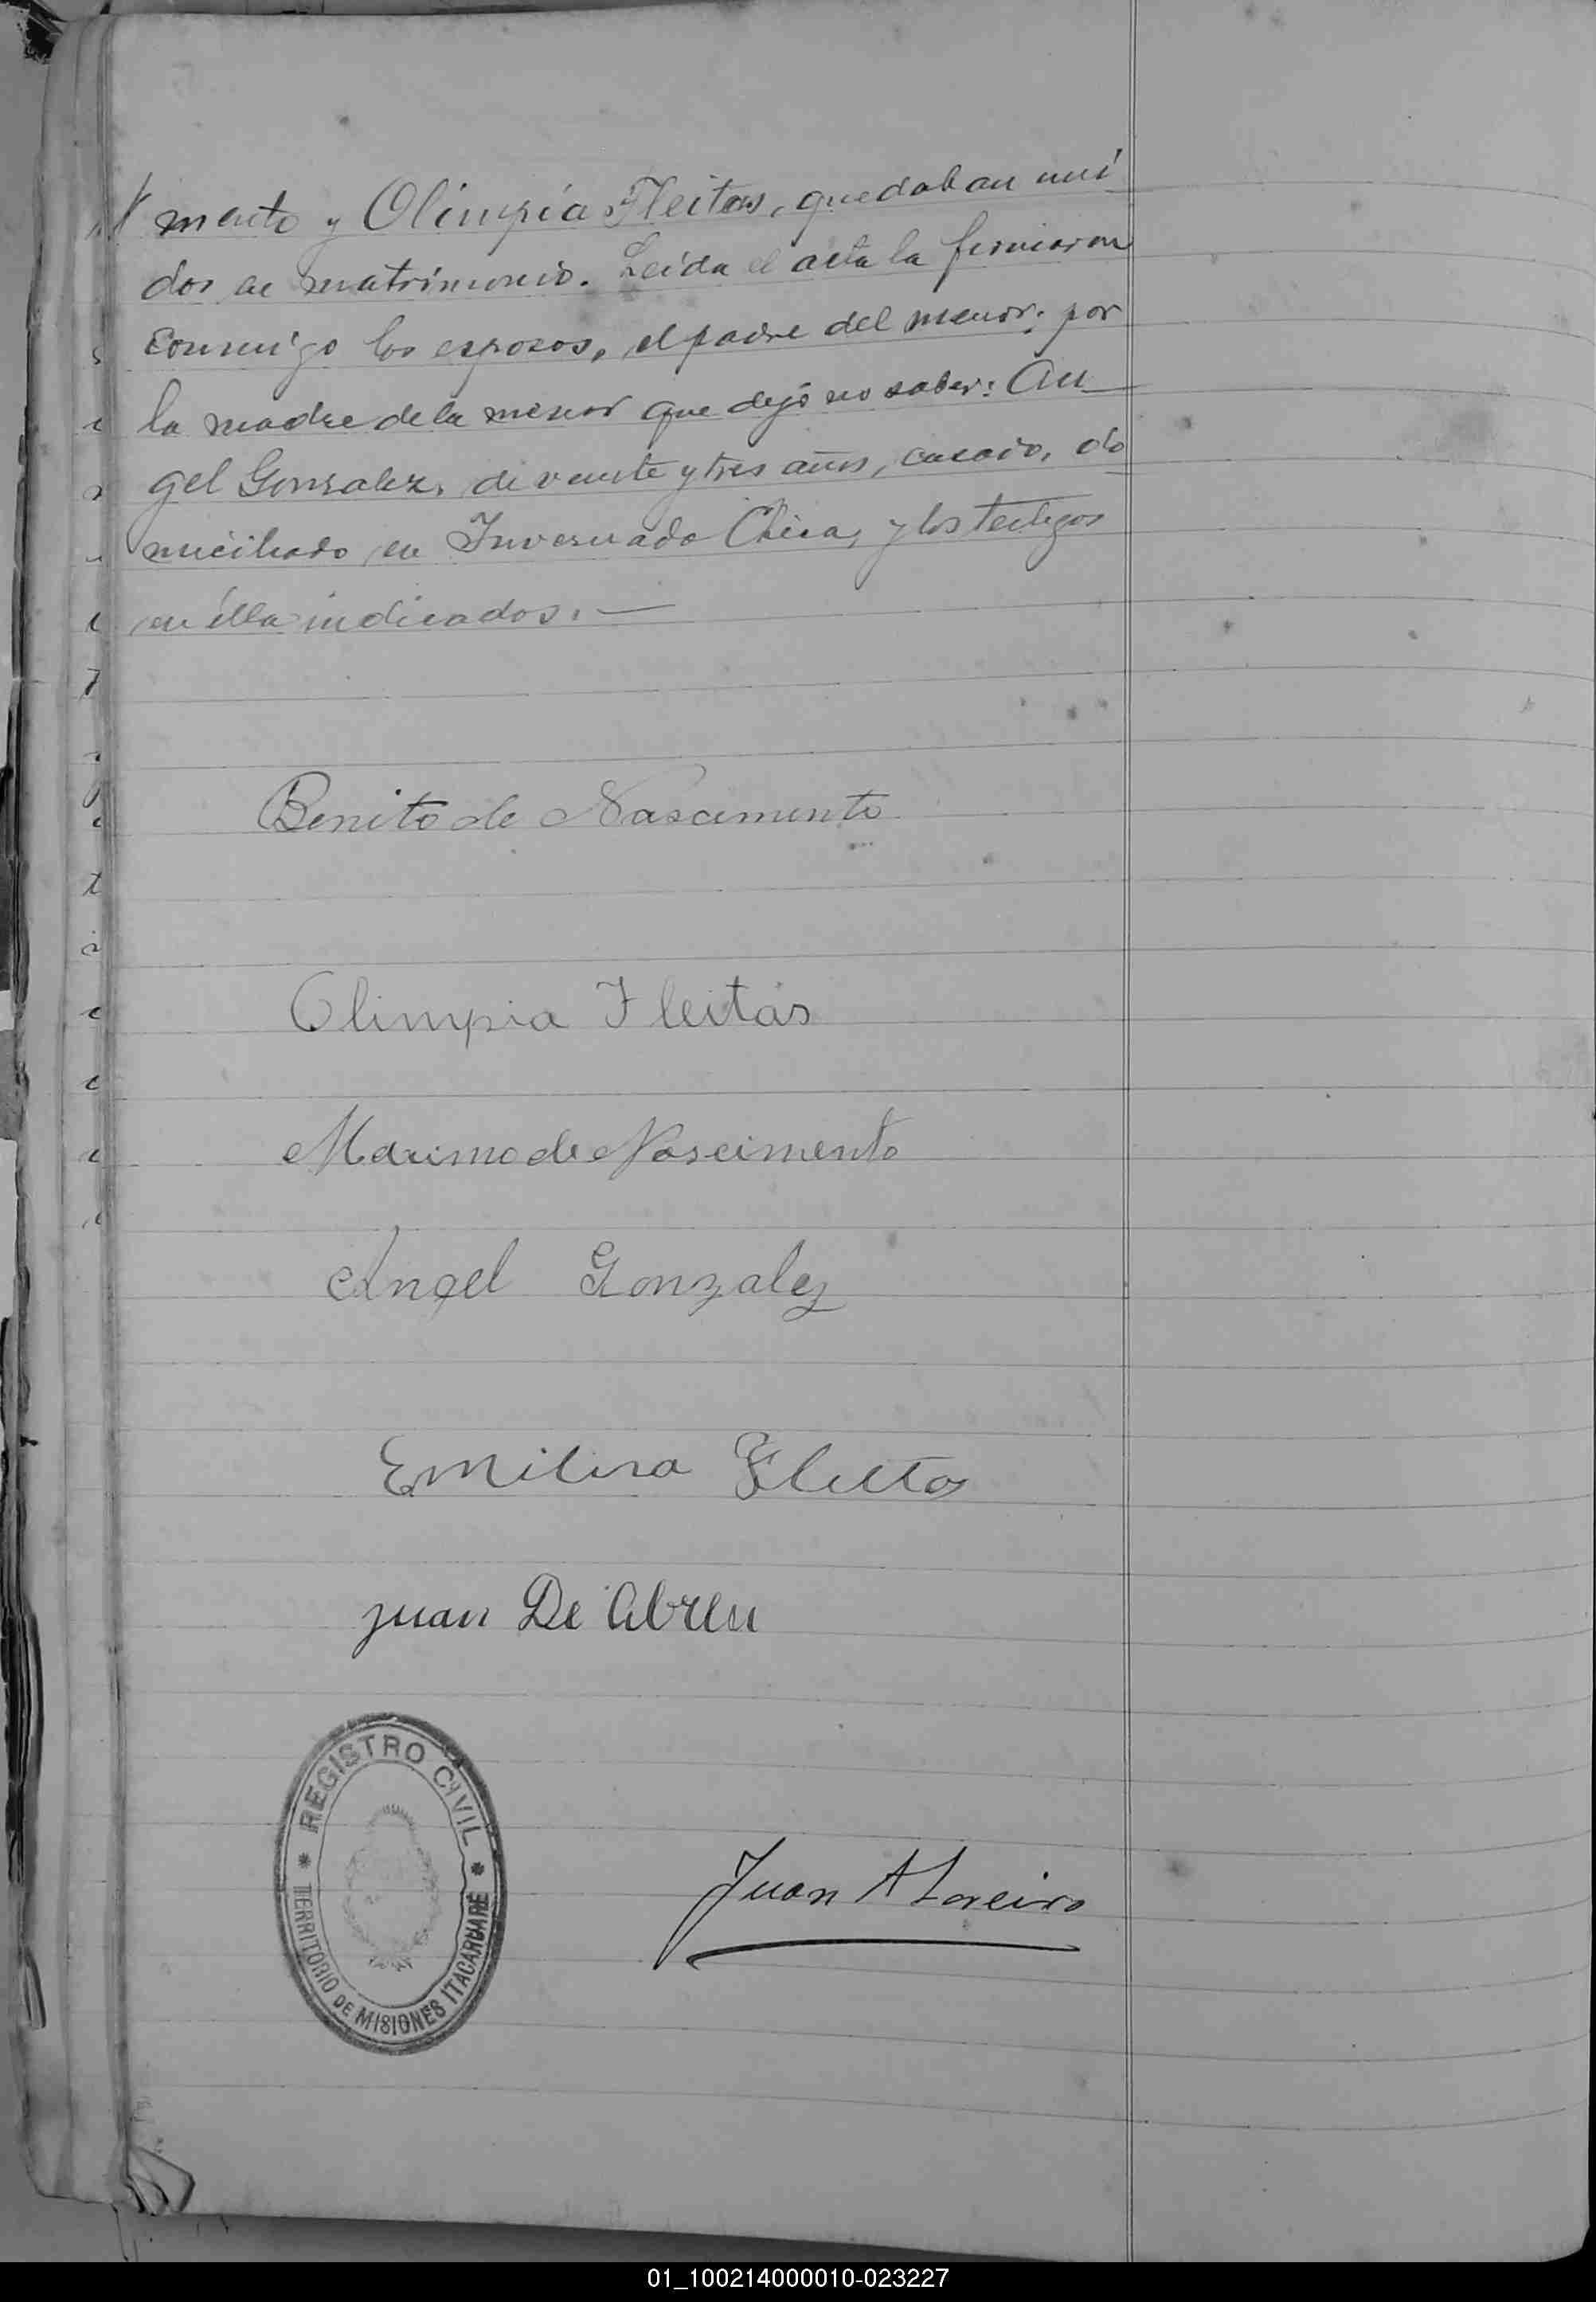 mento y Olimpia Fleitas, quedaban uni
dos en matrimonio. Leida el acta la firmaron
conmigo los esposos, el padre del menor; por
la madre de la menor que dijó no saber: An
gel Gonzalez, de veinte y tres años, casado, do
miciliado en Invernada Chica, y los testigos
en élla indicados. —
Benito de Nascimento
Olimpia Fleitas
Maximo de Nascimento
Angel Gonzalez
Fleitas
Juan De Abreu
REGISTRO CIVIL
TERRITORIO DE MISIONES ITACARUARE
Juan A Loreiro
01_100214000010-023227